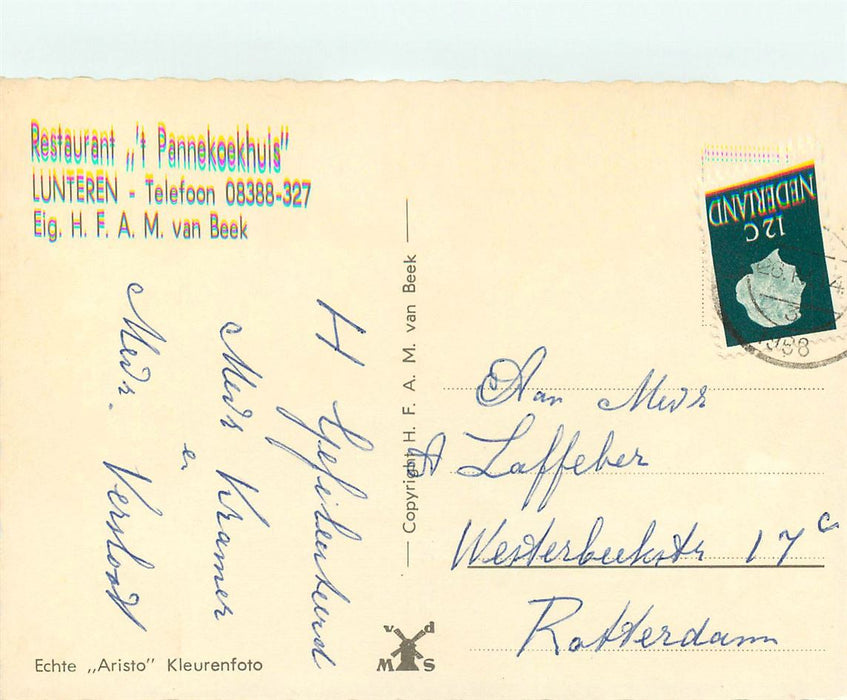 Restaurant „'t Pannekoekhuis”
LUNTEREN - Telefoon 08388-327
Eig. H. F. A. M. van Beek
H Gefeliciteerd
Medr Kramer
en
Medr. Versloot
Echte „Aristo” Kleurenfoto
Copyright H. F. A. M. van Beek
v d
M S
NEDERLAND
12 C
Aan Medr
A Laffeber
Westerbeekstr 17c
Rotterdam